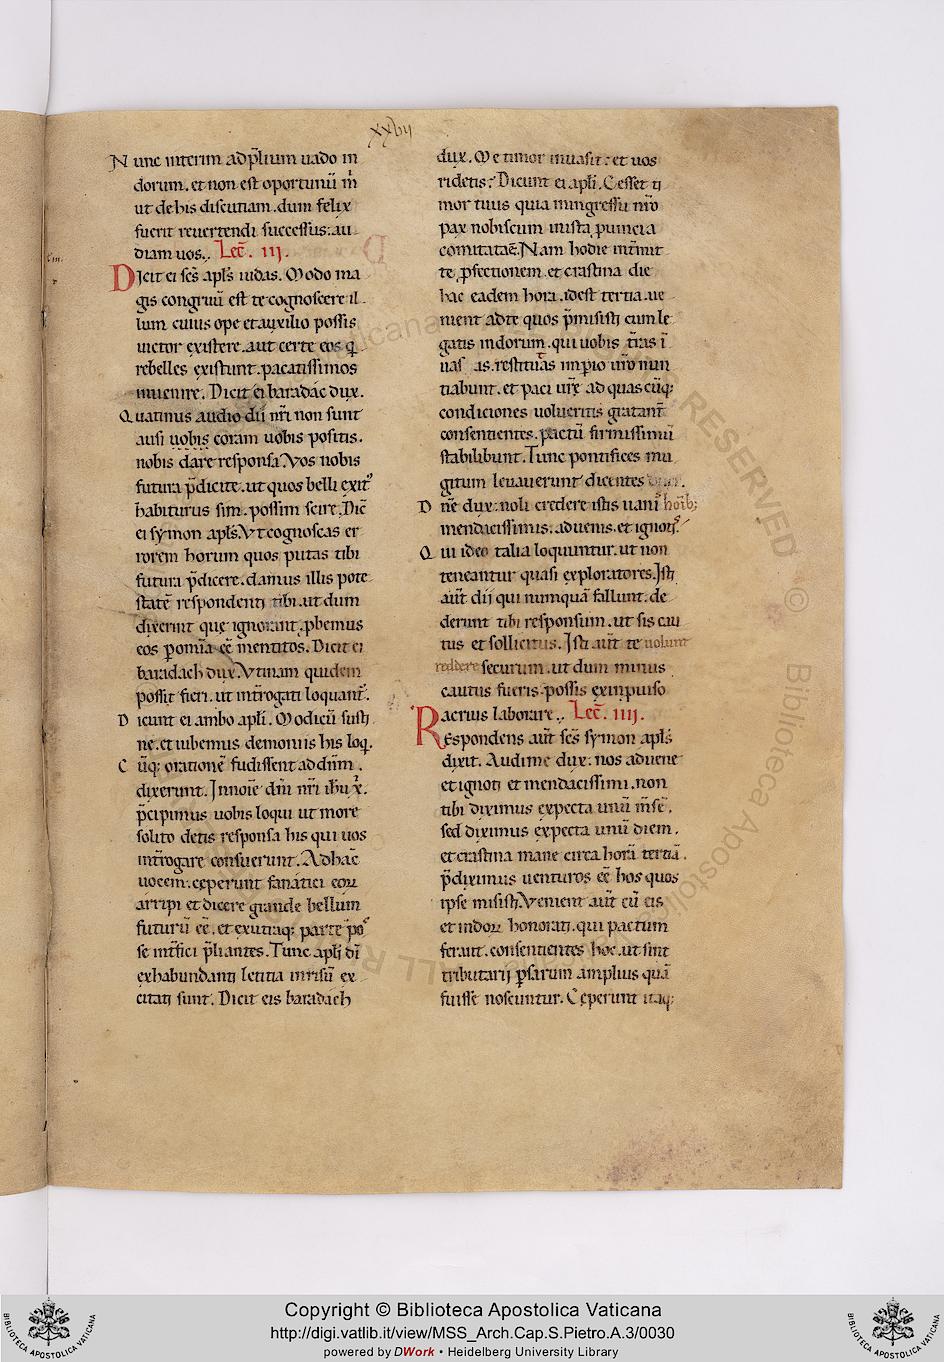 xxvij
Nunc interim ad p̄lium uado in
dorum. et non est oportunū m̄
ut de his discutiam. dum felix
fuerit reuertendi successus: au
diam uos., Lec̄. III.
Dicit ei sc̄s apl̄s iudas. Modo ma
gis congruū est te cognoscere il
lum cuius ope et auxilio possis
uictor existere. aut certe eos q̄
rebelles existunt. pacatissimos
inuenire. Dicit ei baradac dux.
Quatinus audio dii nr̄i non sunt
ausi uobis coram uobis positis.
nobis dare responsa. Vos nobis
futura p̄dicite. ut quos belli exit᾽
habiturus sim. possim scire. Dic̄
ei symon apl̄s. Vt cognoscas er
rorem horum quos putas tibi
futura p̄dicere. damus illis pote
statē respondenti tibi. ut dum
dixerint que ignorant. ꝓbemus
eos ꝑ om̄ia ēē mentitos. Dicit ei
baradach dux. Vtinam quidem
possit fieri. ut int̄rogati loquant᾽.
Dicunt ei ambo apl̄i. Modicū susti
ne. et iubemus demoniis his loq̄.
Cūq; orationē fudissent ad dn̄m.
dixerunt. In noīe dn̄i nr̄i ih̄u x̄.
p̄cipimus uobis loqui ut more
solito detis responsa his qui uos
int̄rogare consuerunt. Ad hac̄
uocem. ceperunt fanatici eoꝝ
arripi et dicere grande bellum
futurū ēē. et ex utraq; parte po᾽
se int̄fici p̄liantes. Tunc apl̄i dī
exhabundanti letitia in risū ex
citati sunt. Dicit eis baradach
dux. Me timor inuasit: et uos
ridetis? Dicunt ei apl̄i. Cesset ti
mor tuus quia in ingressu nr̄o
pax nobiscum in ista puincia
comitata ē. Nam hodie int̄mit
te ꝓfectionem. et crastina die
hac eadem hora. idest tertia. ue
nient ad te quos p̄misisti cum le
gatis indorum. qui uobis t̄ras ī
uas as. restitutas imperio ur̄o nun
tiabunt. et paci ur̄e ad quascūq;
condiciones uolueritis gratant̄
consentientes. pactū firmissimū
stabilibunt. Tunc pontifices mu
gitum leuauerunt dicentes
Dn̄e dux. noli credere istis uani᾽ hoīb;
mendacissimis. aduenis. et ignot᾽.
Qui ideo talia loquuntur. ut non
teneantur quasi exploratores. Isti
aūt dij qui numquā fallunt. de
derunt tibi responsum. ut sis cau
tus et sollicitus. Isti aūt te uolunt
reddere securum. ut dum minus
cautus fueris. possis ex inpuiso
acrius laborare., Lec̄. IIII.
Respondens aūt sc̄s symon apl̄s
dixit. Audi me dux. nos aduene
et ignoti et mendacissimi. non
tibi diximus expecta unū m̄sē.
sed diximus expecta unū diem.
et crastina mane circa horā tertiā.
p̄diximus uenturos ēē hos quos
ipse misisti. Venient aūt cū eis
et indoꝝ honorati. qui pactum
ferant. consentientes hoc. ut sint
tributarij ꝑsarum amplius quā
fuisse noscuntur. Ceperunt itaq;
Copyright © Biblioteca Apostolica Vaticana
http://digi.vatlib.it/view/MSS_Arch.Cap.S.Pietro.A.3/0030
powered by DWork • Heidelberg University Library